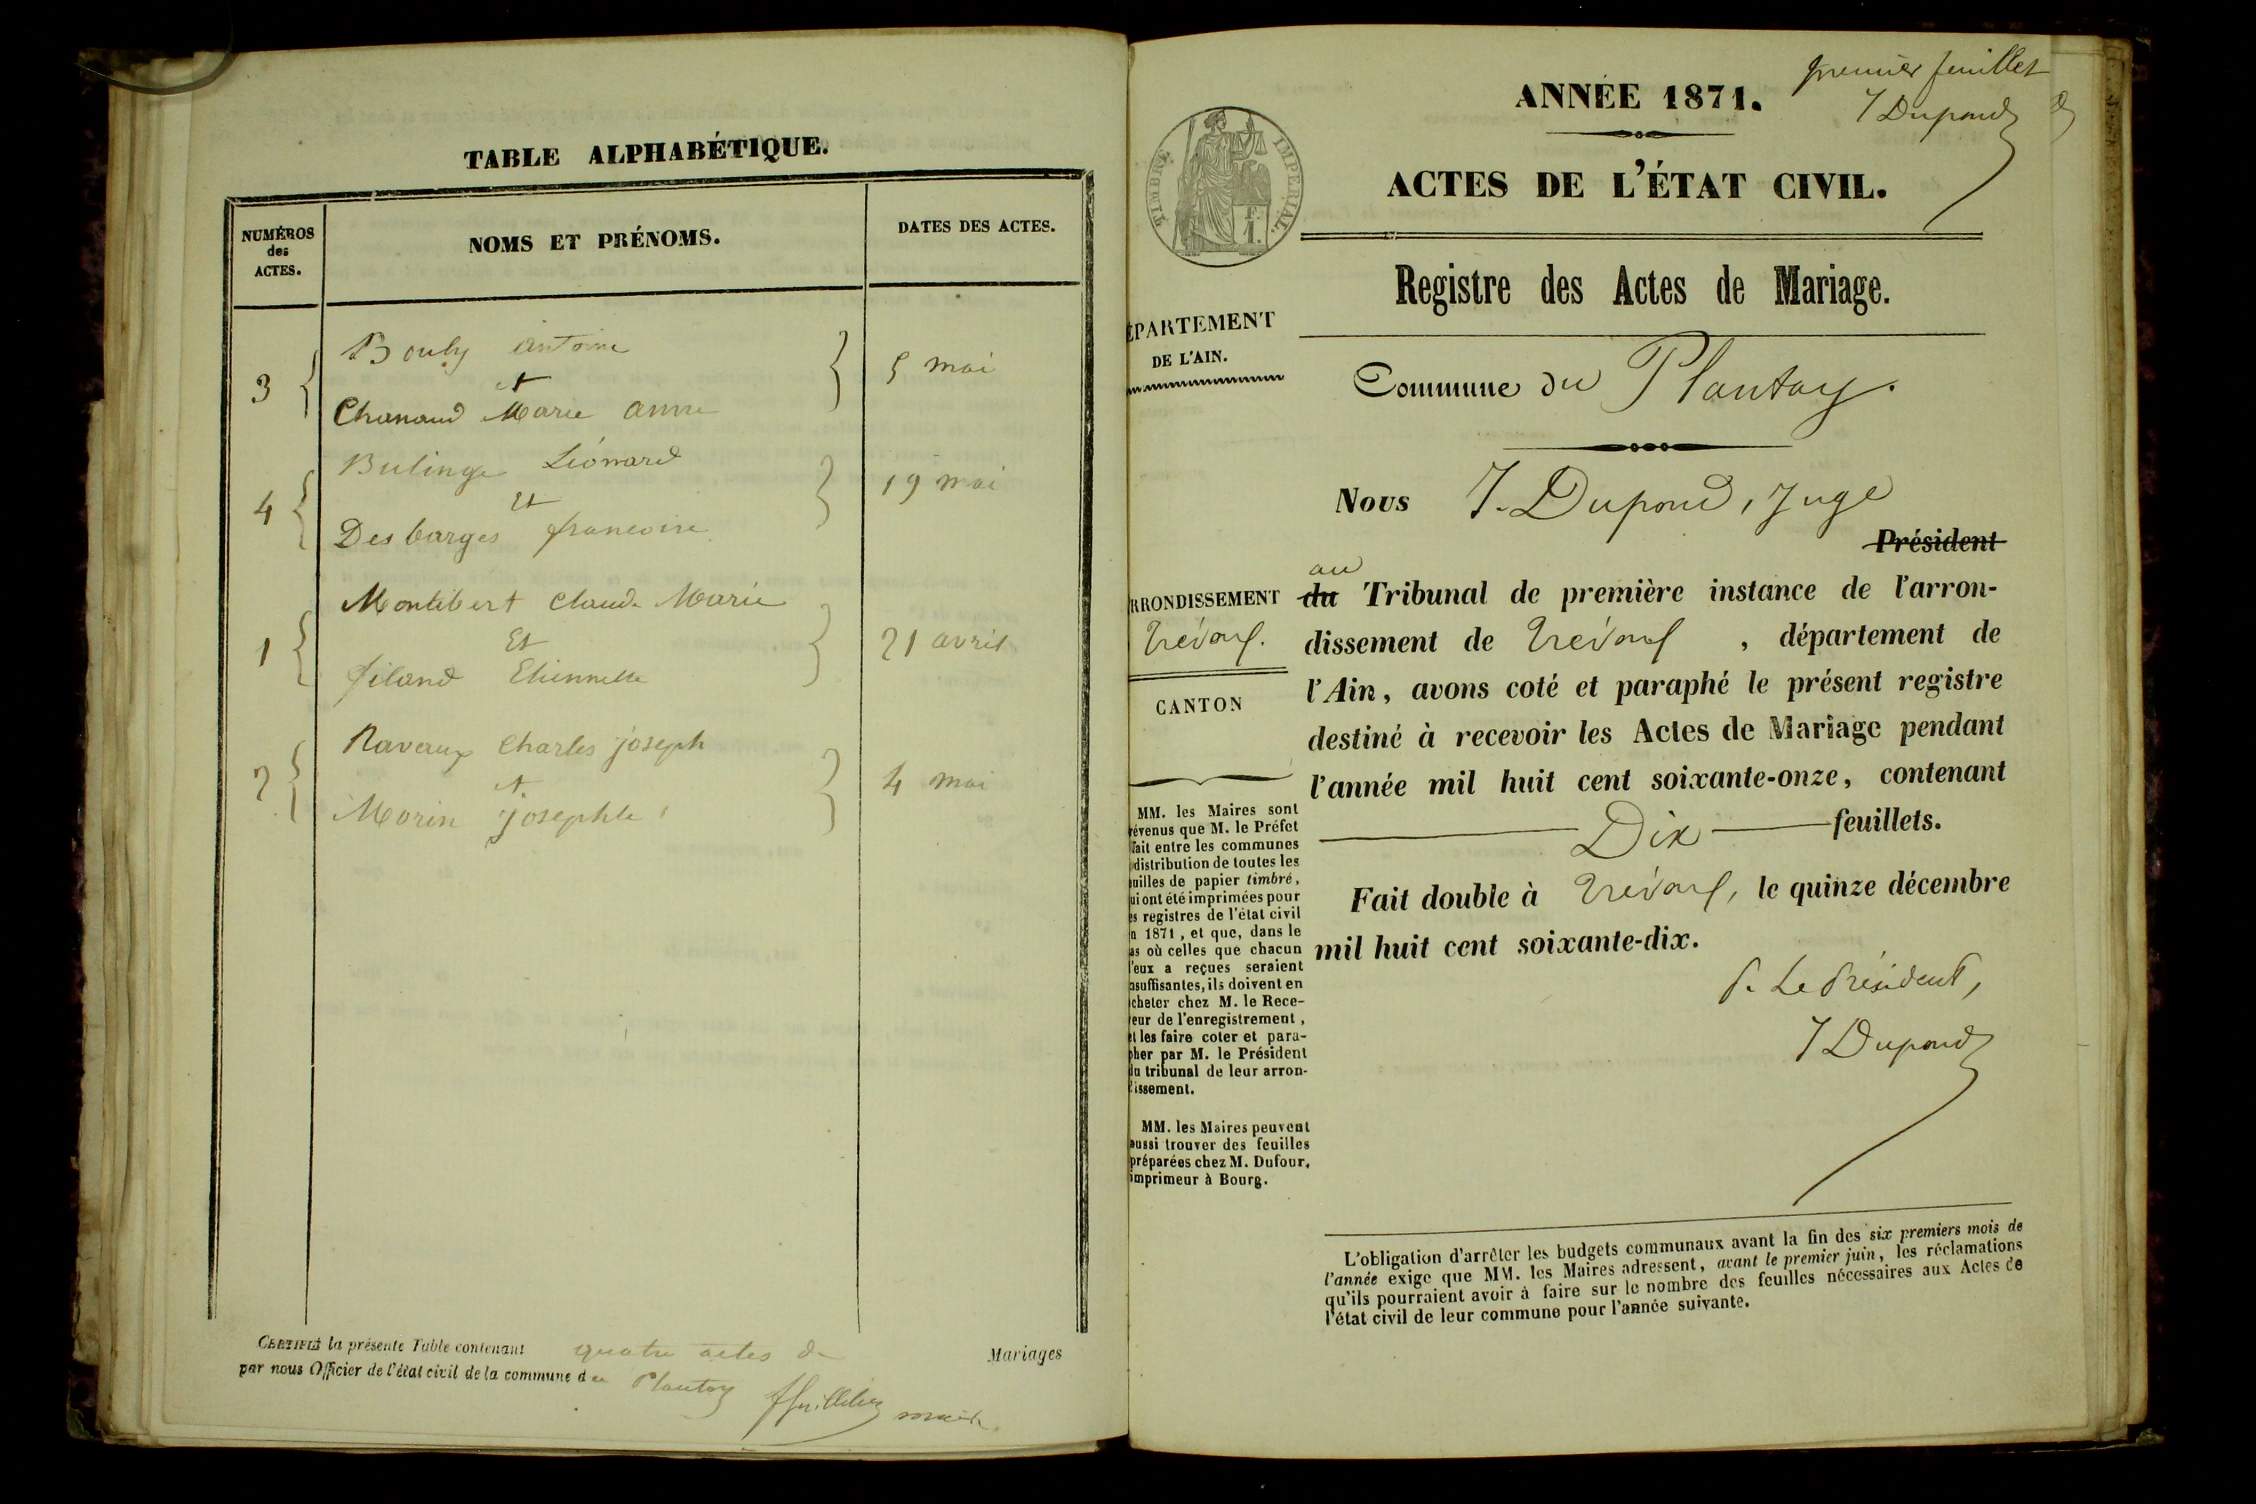 TABLE ALPHABÉTIQUE.
NUMÉROS
des
ACTES.
NOMS ET PRÉNOMS.
DATES DES ACTES.
Bouby antoine
et
3 5 mai
Chanaud Marie anne
Bulinge Léonard
Et
4 19 mai
Desbarges francoise
Montibert Claude Marie
Et
1 21 avril
filand Etiennette
Raveaux Charles joseph
et
2 4 mai
Morin josephte
CERTIFIÉ la présente Table contenant quatre actes de Mariages
par nous Officier de l'état civil de la commune du Plantay
maire
premier feuillet
J Dupond
ANNÉE 1871.
ACTES DE L'ÉTAT CIVIL.
TIMBRE IMPERIAL.
F.
1.
Registre des Actes de Mariage.
ÉPARTEMENT
DE L'AIN.
Commune du Plantay.
Nous J. Dupond, Juge
Président
au
du Tribunal de première instance de l'arron-
dissement de Trévoux, département de
l'Ain, avons coté et paraphé le présent registre
destiné à recevoir les Actes de Mariage pendant
l'année mil huit cent soixante-onze, contenant
Dix feuillets.
Fait double à Trévoux, le quinze décembre
mil huit cent soixante-dix.
P. Le Président,
J Dupond
RRONDISSEMENT
Trévoux.
CANTON
MM. les Maires sont
révenus que M. le Préfet
fait entre les communes
distribution de toutes les
uilles de papier timbré,
ui ont été imprimées pour
es registres de l'état civil
n 1871, et que, dans le
as où celles que chacun
l'eux a reçues seraient
nsuffisantes, ils doivent en
cheter chez M. le Rece-
eur de l'enregistrement,
et les faire coter et para-
pher par M. le Président
du tribunal de leur arron-
issement.
MM. les Maires peuvent
aussi trouver des feuilles
préparées chez M. Dufour,
imprimeur à Bourg.
L'obligation d'arrêter les budgets communaux avant la fin des six premiers mois de
l'année exige que MM. les Maires adressent, avant le premier juin, les réclamations
qu'ils pourraient avoir à faire sur le nombre des feuilles nécessaires aux Actes de
l'état civil de leur commune pour l'année suivante.